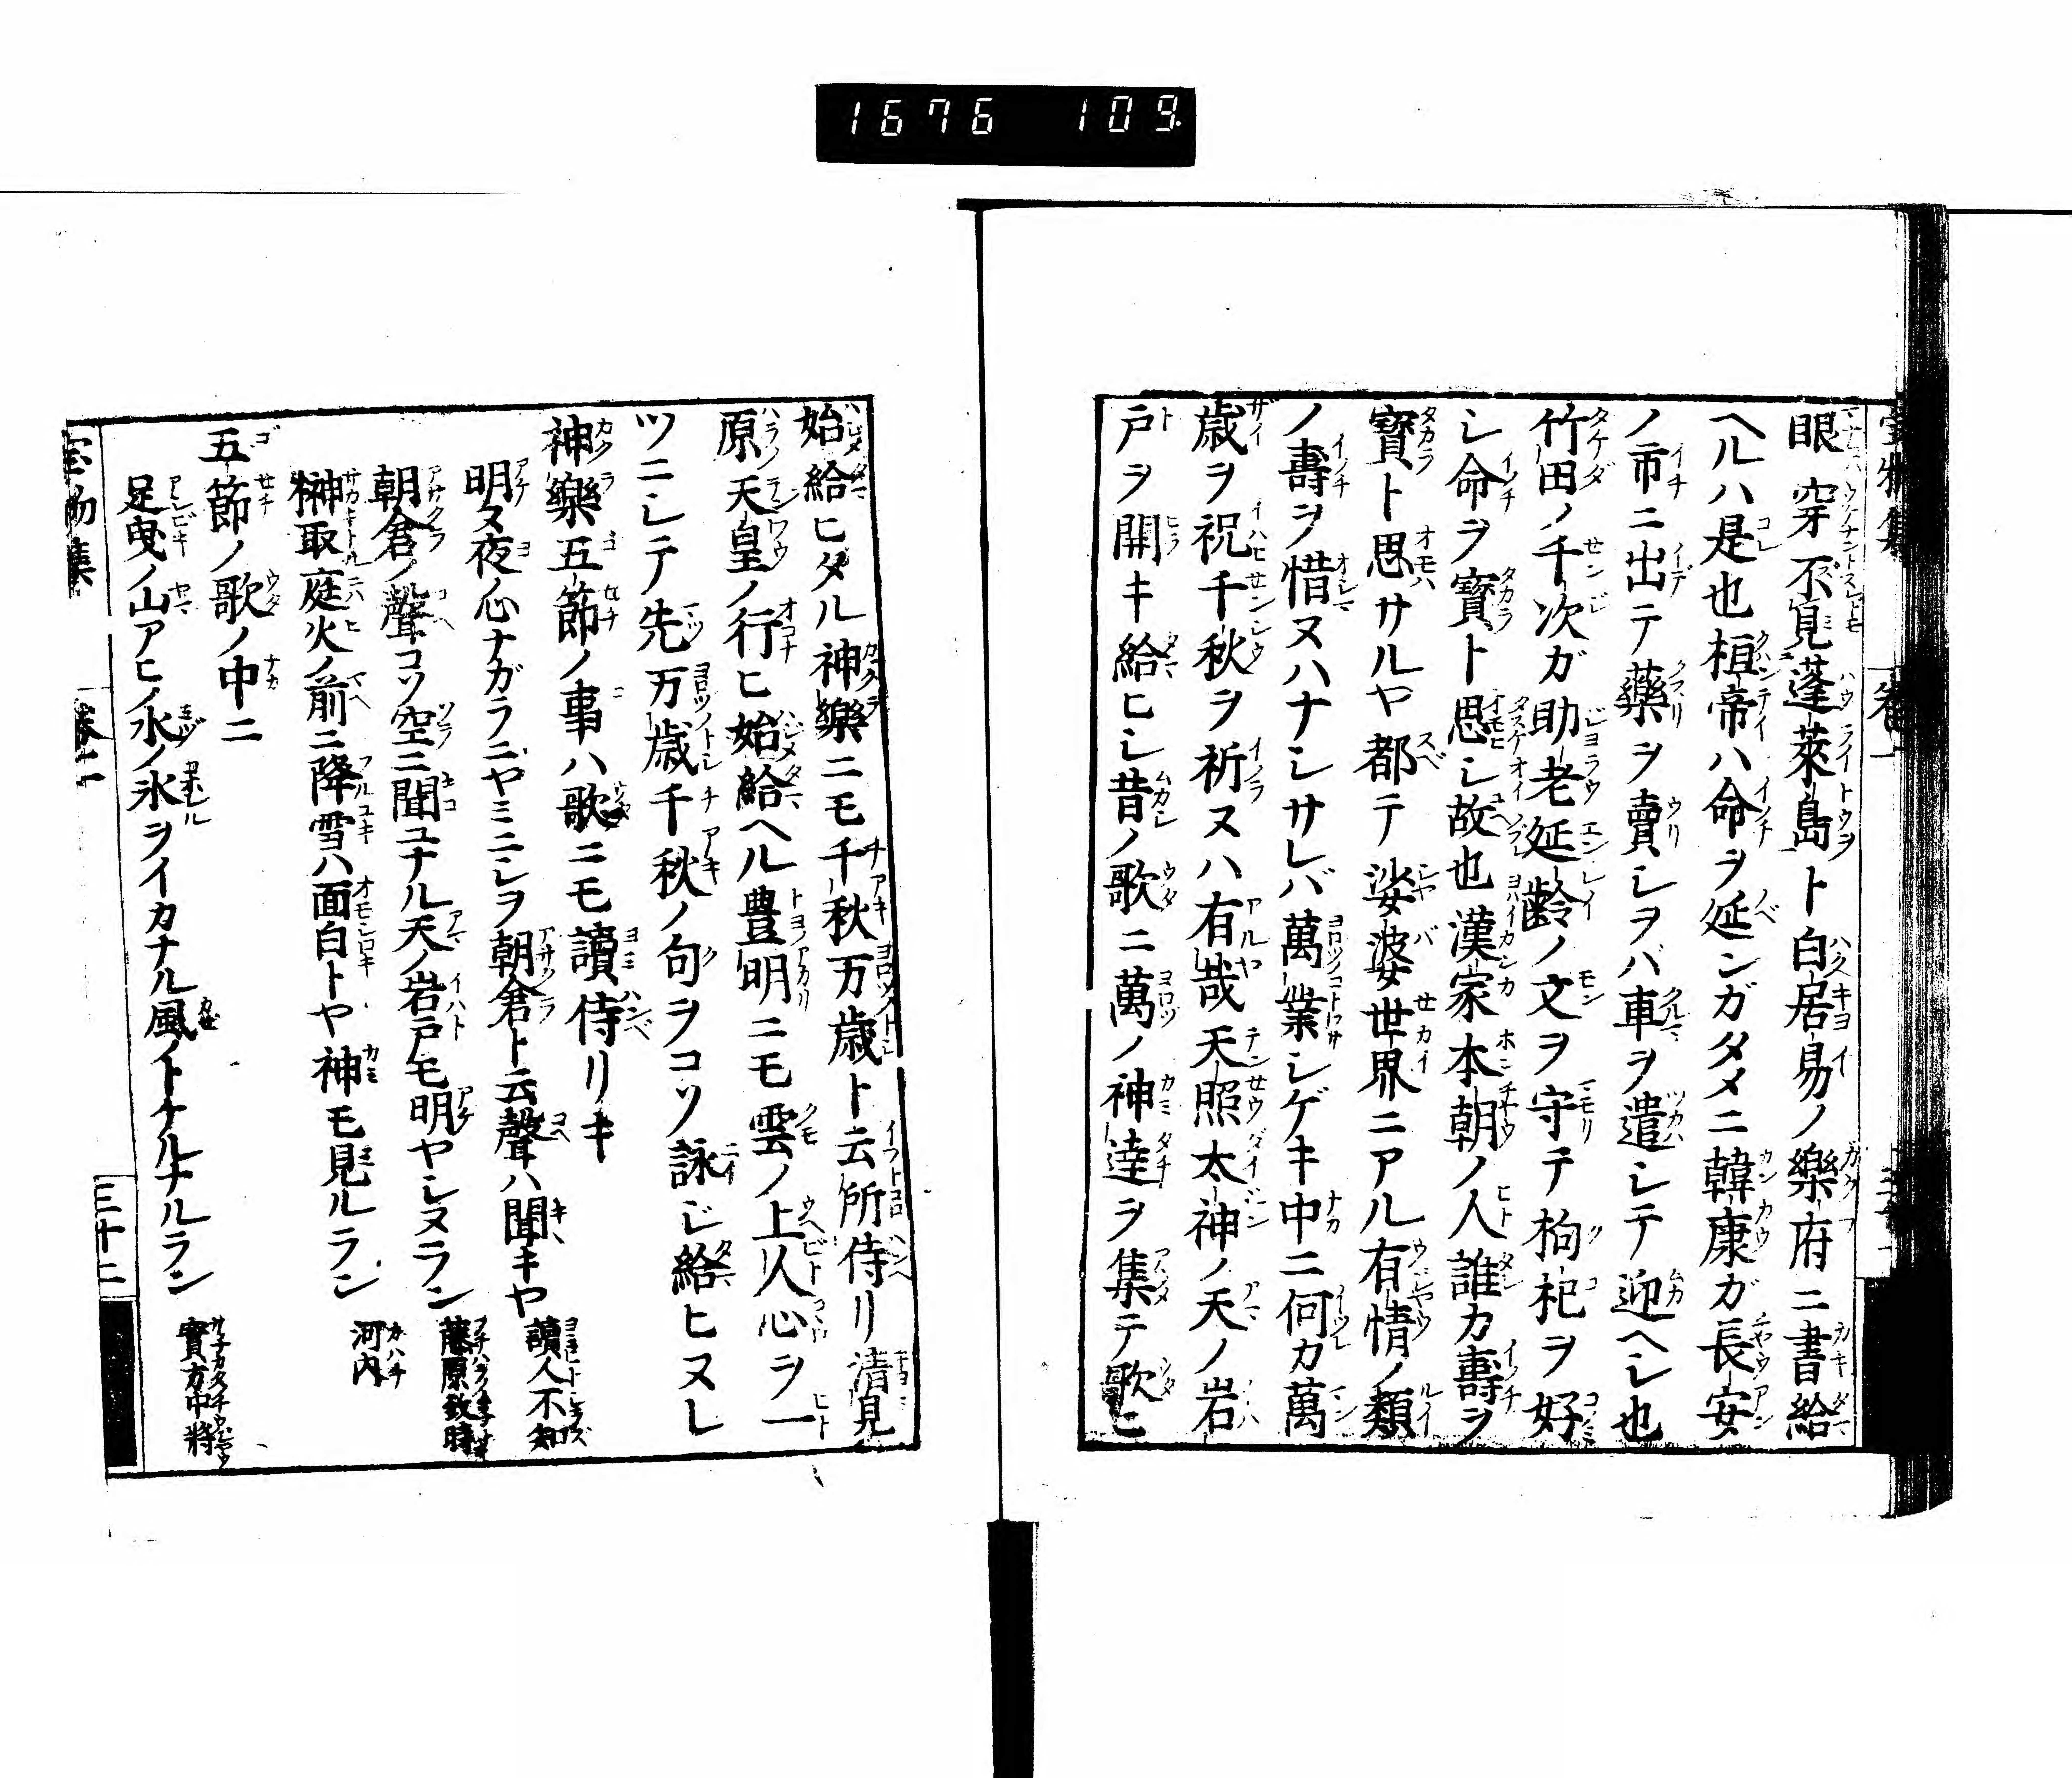 1676 109.
眼穿不見蓬萊島ト白居易ノ樂府ニ書給
ヘルハ是也桓帝ハ命ヲ延ンガタメニ韓康ガ長安
ノ市ニ出テ藥ヲ賣シヲバ車ヲ遣シテ迎ヘシ也
竹田ノ千次ガ助老延齡ノ文ヲ守テ枸杞ヲ好
シ命ヲ寶ト思シ故也漢家本朝ノ人誰カ壽ヲ
寶ト思サルヤ都テ娑婆世界ニアル有情ノ類
ノ壽ヲ惜ヌハナシサレバ萬業シゲキ中ニ何カ萬
歳ヲ祝千秋ヲ祈ヌハ有哉天照太神ノ天ノ岩
戸ヲ開キ給ヒシ昔ノ歌ニ萬ノ神達ヲ集テ歌ヒ
始給ヒタル神樂ニモ千秋万歳ト云所侍リ清見
原天皇ノ行ヒ始給ヘル豊明ニモ雲ノ上人心ヲ一
ツニシテ先万歳千秋ノ句ヲコソ詠ジ給ヒヌレ
神樂五節ノ事ハ歌ニモ讀侍リキ
明タ夜ノ心ナガラニヤミニシヲ朝倉ト云聲ハ聞キヤ 讀人不知
朝倉ノ聲コソ空ニ聞ユナル天ノ岩戸モ明ヤシヌラン 藤原致時
榊取庭火ノ前ニ降雪ハ面白トヤ神モ見ルラン 河内
五節ノ歌ノ中ニ
足曳ノ山アヒノ水ノ氷ヲイカナル風ノトケルナルラン 實方中將
宝物集 卷二 三十二